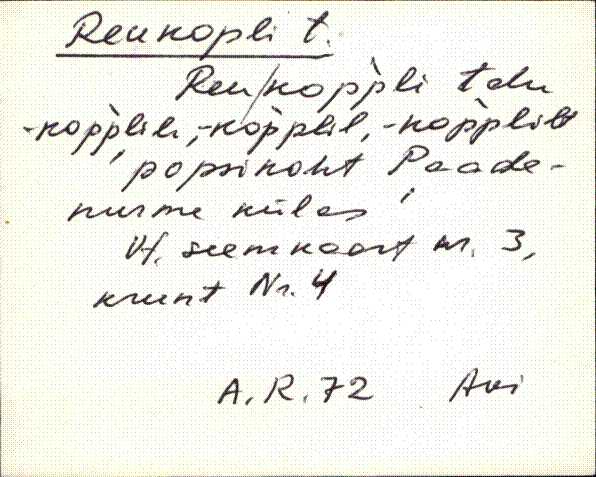 Reukopli t.
Reu/kop̀pli talu
-kop̀plile, -kop̀plil, -kop̀plilt
popsikoht Paade-
nurme külas
Vt. skeemkaart nr. 3,
krunt Nr. 4
A. R. 72 Avi